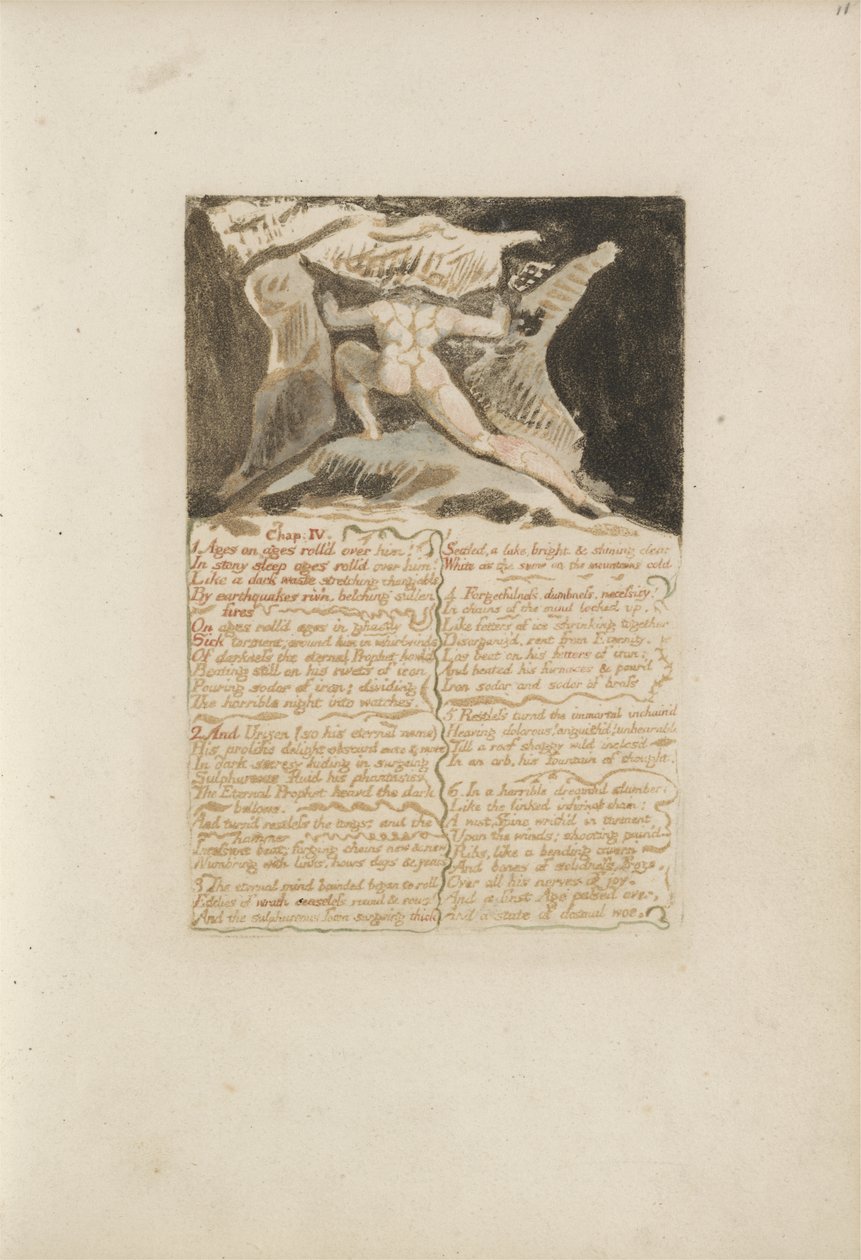 11
Chap: IV.
1. Ages on ages roll'd over him!
In stony sleep ages roll'd over him!
Like a dark waste stretching chang'able
By earthquakes riv'n, belching sullen
fires
On ages roll'd ages in ghastly
Sick torment; around him in whirlwinds
Of darkness the eternal Prophet howl'd
Beating still on his rivets of iron
Pouring sodor of iron; dividing
The horrible night into watches.
2. And Urizen (so his eternal name)
His prolific delight obscurd more & more
In dark secresy hiding in surgeing
Sulphureous fluid his phantasies.
The Eternal Prophet heavd the dark
bellows,
And turn'd restless the tongs; and the
hammer
Incessant beat; forging chains new & new
Numb'ring with links. hours, days & years
3. The eternal mind bounded began to roll
Eddies of wrath ceaseless round & round,
And the sulphureous foam surgeing thick
Settled, a lake, bright, & shining clear:
White as the snow on the mountains cold.
4. Forgetfulness, dumbness, necessity!
In chains of the mind locked up,
Like fetters of ice shrinking together
Disorganiz'd, rent from Eternity.
Los beat on his fetters of iron;
And heated his furnaces & pour'd
Iron sodor and sodor of brass
5. Restless turnd the immortal inchain'd
Heaving dolorous! anguish'd! unbearable
Till a roof shaggy wild inclos'd
In an orb, his fountain of thought.
6. In a horrible dreamful slumber;
Like the linked infernal chain;
A vast Spine writh'd in torment
Upon the winds; shooting pain'd
Ribs, like a bending cavern
And bones of solidness, froze
Over all his nerves of joy.
And a first Age passed over,
And a state of dismal woe.